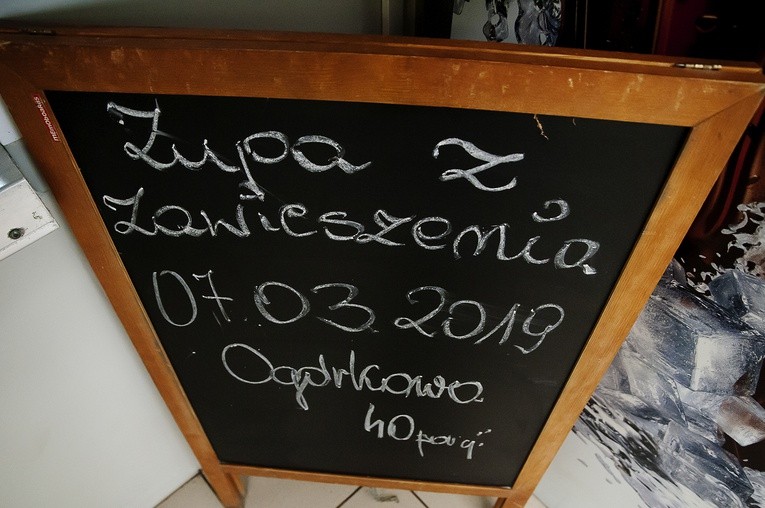 Zupa z
zawieszenia
07.03.2019
Ogórkowa
40
memoboards